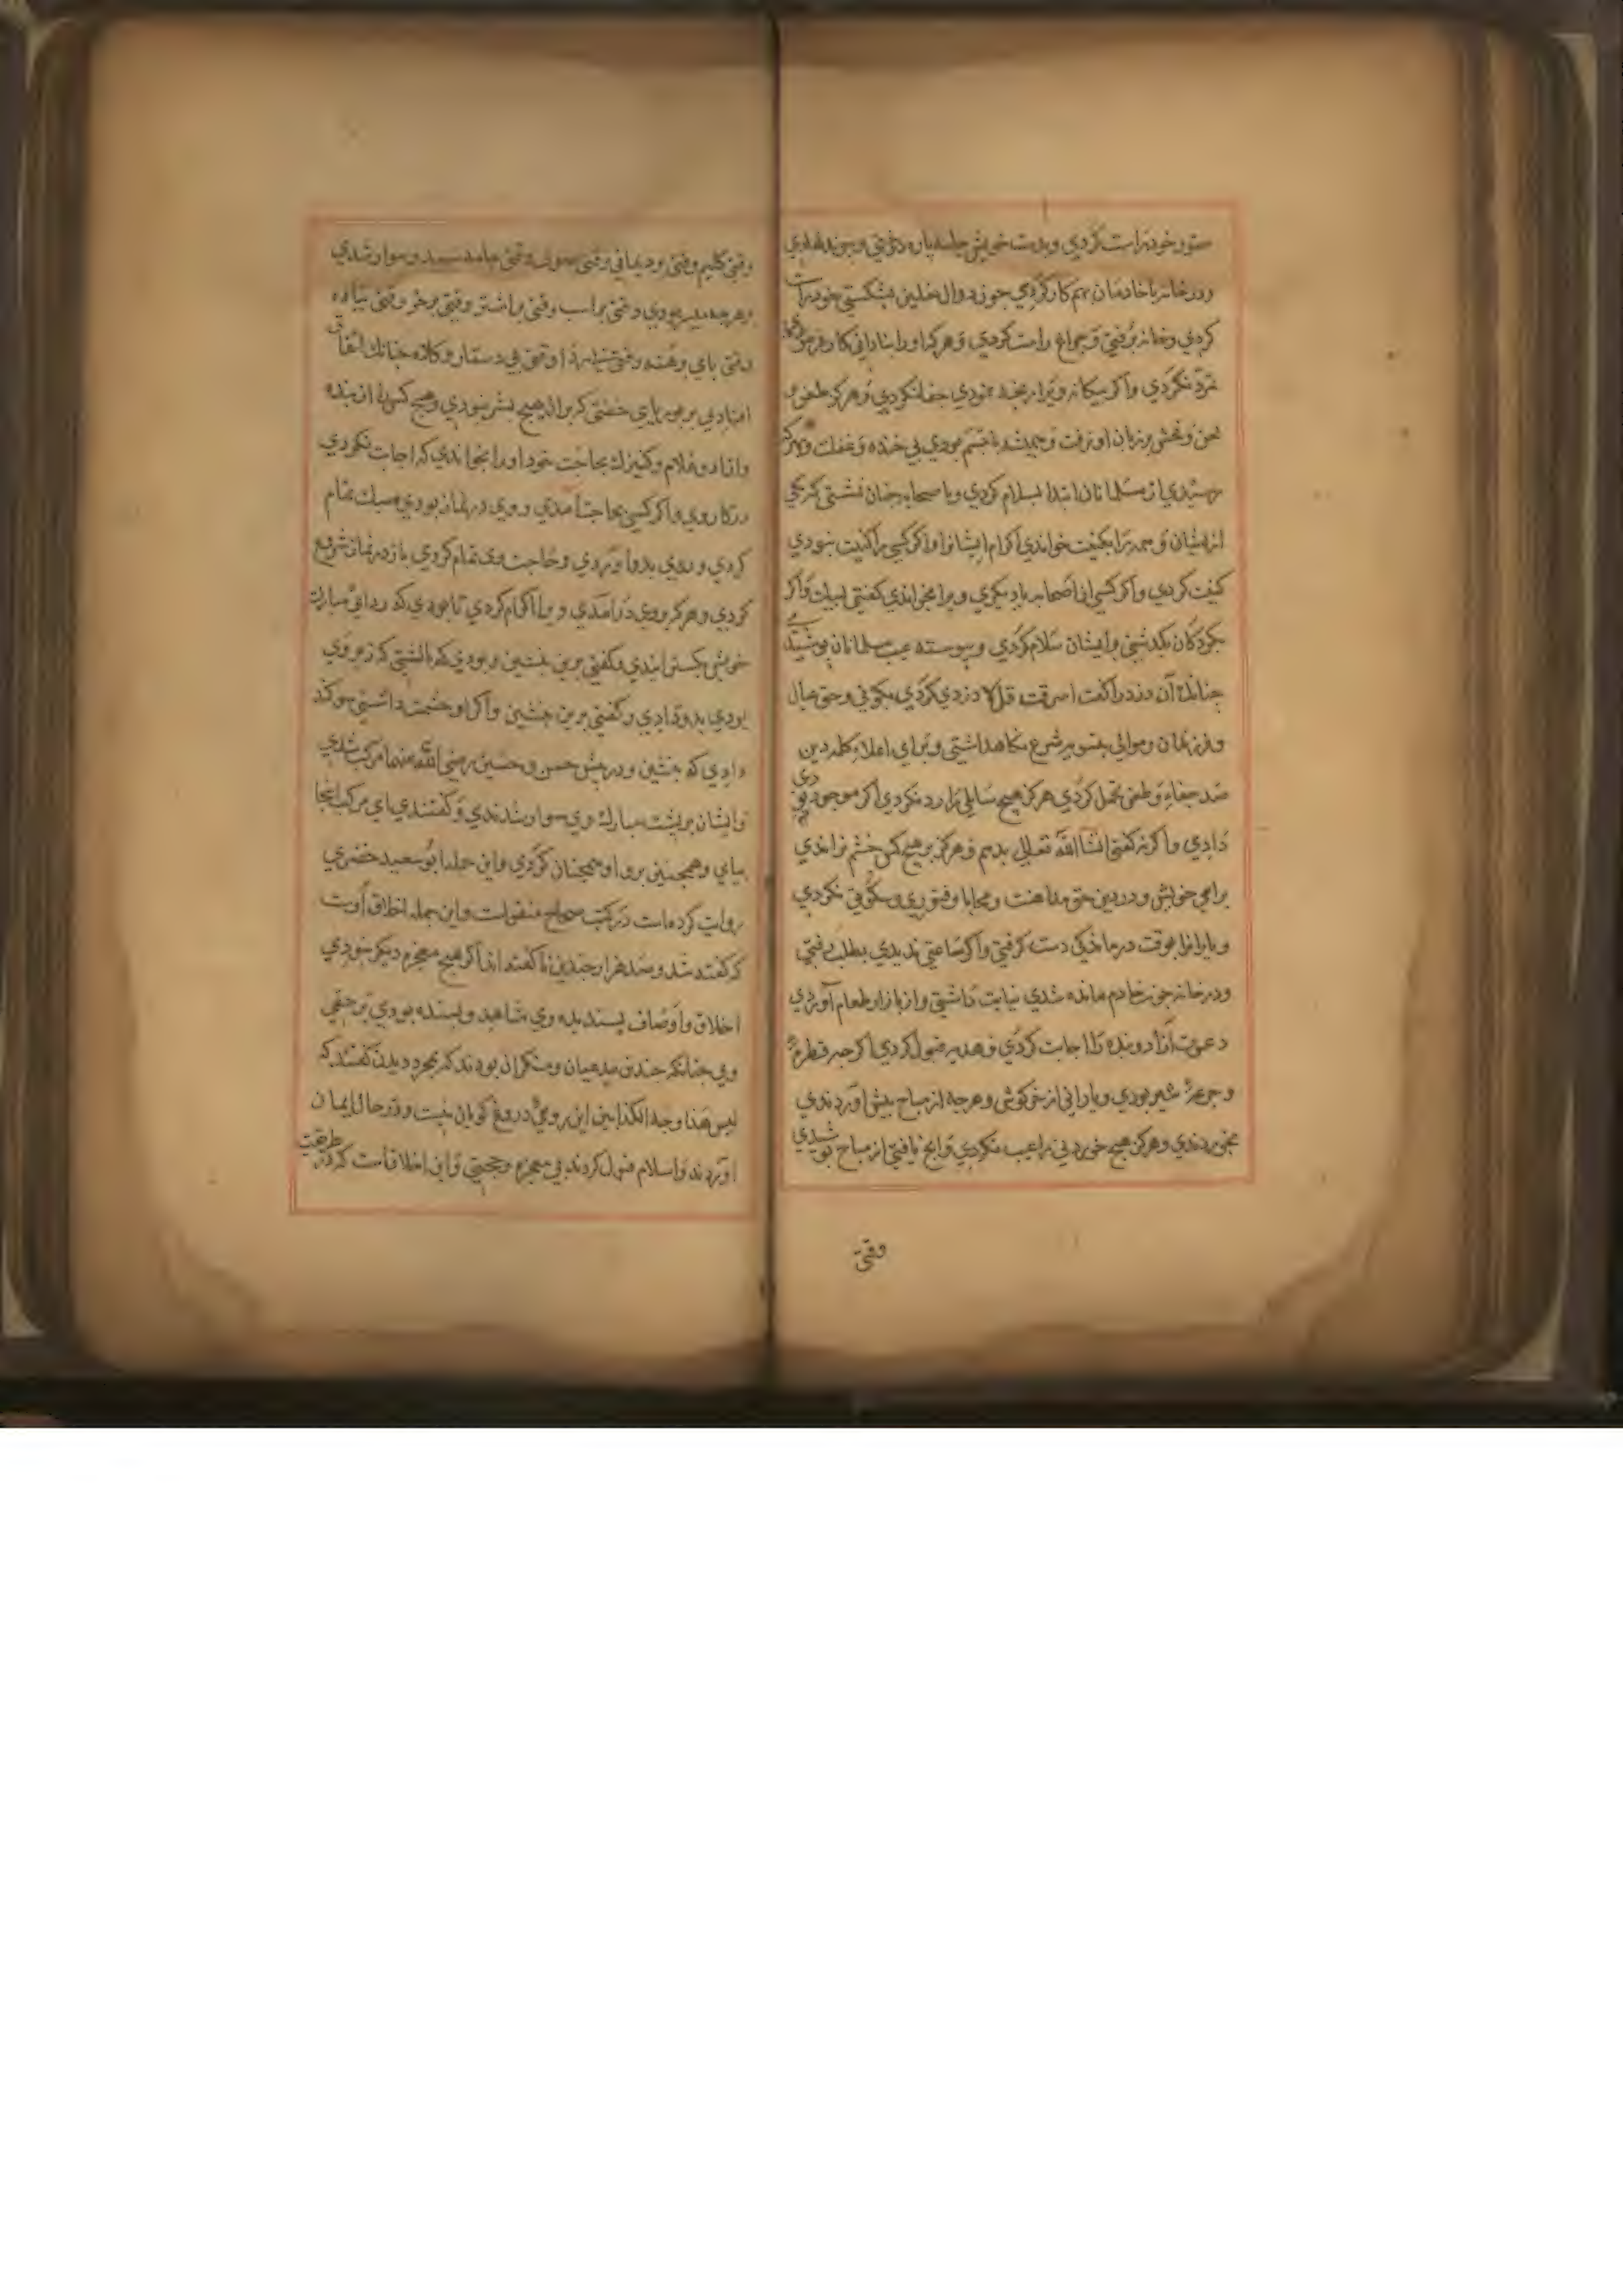 ستور خود راست کردی و بدست خویش جامه پاره دوختی و پیوند
ودر خانه با خادمان بهم کار کردی جون دوال نعلین بشکستی خود راست
کردی و خانه برفتی و جراغ راست کردی و هرکه او را بنادانی کار
نکردی واکر بیکانه ویرا رنجه نمودی جفا نکردی و هرکز طعن و
لعن و فحش بر زبان او نرفت وهمیشه با تبسم بودی بی خنده و غفلت وهرکه
رسیدی از مسلمانان ابتدا بسلام کردی و با صحابه جنان نشستی که یکی
از ایشان و همه را بکنیت خواندی اکرام ایشانرا واکر کسی را کنیت نبودی
کنیت کردی واکر کسی از اصحابه یا دیکری ویرا بخواندی کفتی لبیک واکر
بکودکان بکذشتی بر ایشان سلام کردی و پیوسته عیب مسلمانان پوشیدی
جنانک آن دزد را کفت اسرقت قل لا دزدی کردی بکو نی و حق عیال
وفرزندان و موالی بدستور شرع نکاه داشتی و برای اعلاء کلمه دین
صد جفا و طعن تحمل کردی هرکز هیج سایلی را رد نکردی اکر موجود بودی
دادی واکر نه کفتی انشاالله تعالی بدهم و هرکز بر هیج کس خشم نراندی
برای خویش و در دین حق مداهنت و محابا و فتوری و سکونی نکردی
و یارانرا بوقت درماندکی دست کرفتی واکر ساعتی ندیدی بطلب رفتی
ودر خانه جون خادم مانده شدی نیابت داشتی و از بازار طعام آوردی
دعوت آزاد و بنده را اجابت کردی و هدیه قبول کردی اکر جه قطره
و جرعه شیر بودی و یا رانی از خرکوش و هرجه از مباح پیش آوردندی
بخوردندی و هرکز هیج خوردنی را عیب نکردی و آنج یافتی از مباح بوشیدی
وقتی
وقتی کلیم وقتی برد یمانی وقتی صوف وقتی جامه سپید و سوار شدی
بر هرجه میسر بودی وقتی بر اسب وقتی بر اشتر وقتی بر خر وقتی پیاده
وقتی پای برهنه وقتی بی ردا وقتی بی دستار و کلاه جنانک اتفاق
افتادی بر بوریایی خفتی که بر آن هیج بستر نبودی و هیج کس را از بنده
وآزاد و غلام و کنیزک بحاجت خود او را بخواندی که اجابت نکردی
در کار وی واکر کسی بحاجت آمدی و وی در نماز بودی سبک تمام
کردی و روی بدو آوردی و حاجت وی تمام کردی باز در نماز شروع
کردی و هرکه بر وی درآمدی ویرا اکرام کردی تا بودی که ردای مبارک
خویش بکسترانیدی و کفتی برین بنشین و بودی که بالشتی که زیر وی
بودی بدو دادی و کفتی برین بنشین و اکر او حشمت داشتی سوکند
دادی که بنشین و در پیش حسن و حسین رضی الله عنهما مرکب شدی
و ایشان بر پشت مبارک وی سوار شدندی و کفتندی ای مرکب اینجا
بیای و همجنین برو او همجنان کردی و این جمله ابو سعید خضری
روایت کرده است در کتب صحاح منقولست و این جمله اخلاق اوست
که کفته شد و صد هزار جندین ناکفته اند اکر هیج معجزه دیکر نبودی
اخلاق و اوصاف پسندیده وی شاهد و بسنده بودی بر حقی
وی جنانکه جندین مدعیان و منکران بودند که بمجرد دیدن کفتند که
لیس هذا وجه الکذابین این روی دروغ کویان نیست و در حال ایمان
آوردند و اسلام قبول کردند بی معجزه و حجتی و این اخلاقست که در طریقت